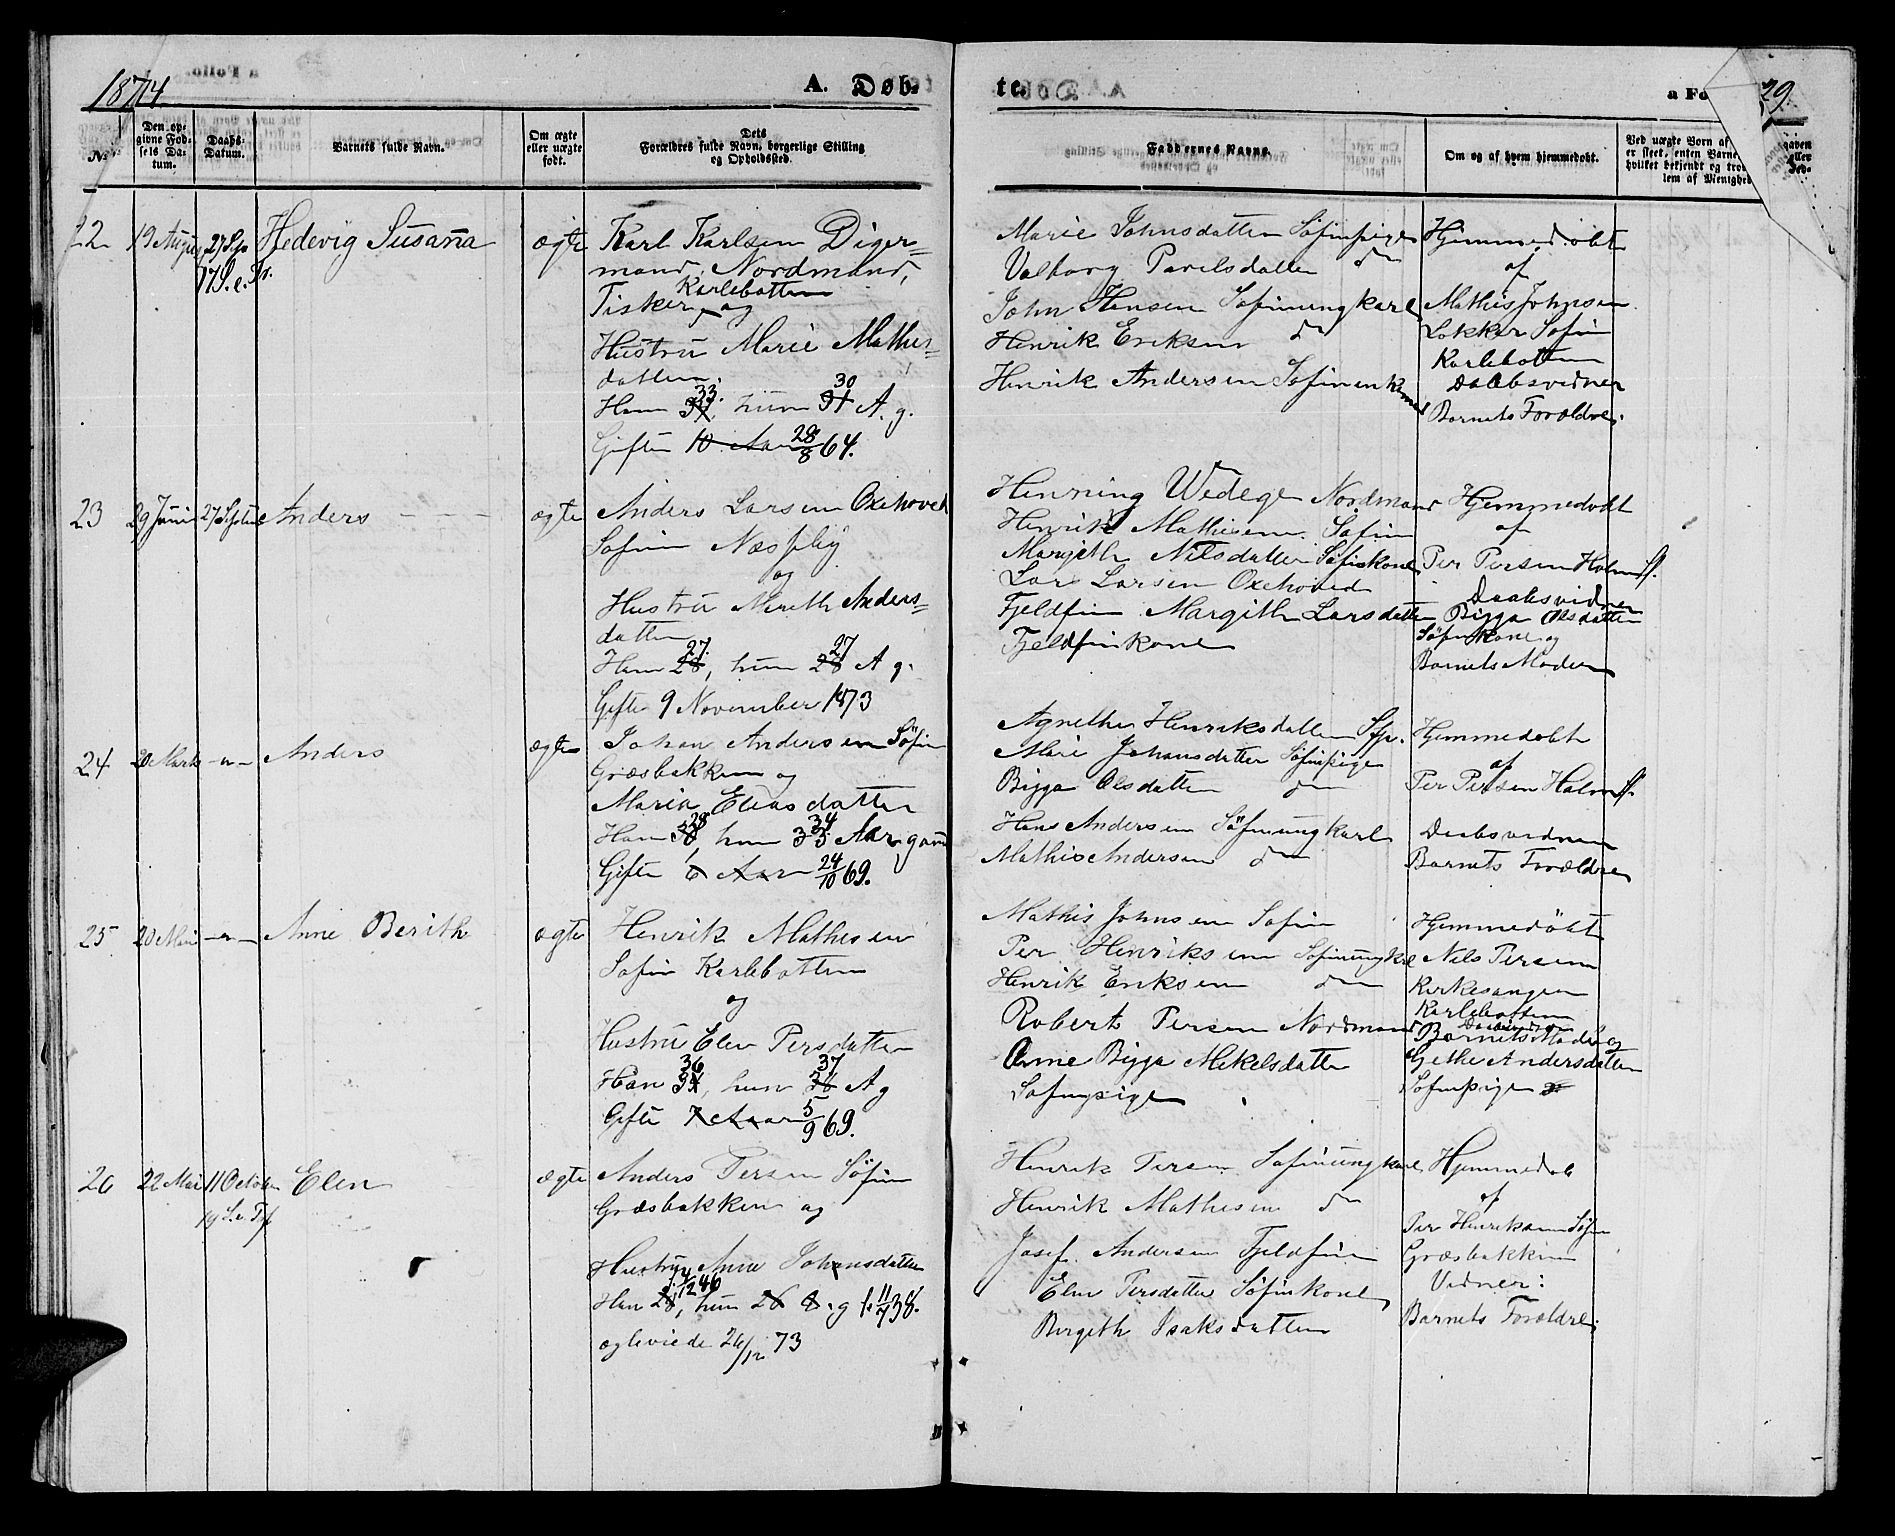 1874.
A. Døb-
te.
a Fo
29.
No.
Den op-
givne Fød-
sels Da-
tum.
Daabs-
Datum.
Barnets fulde Navn.
Om ægte
eller uægte
født.
Dets
Forældres fulde Navn, borgerlige Stilling
og Opholdssted.
Faddernes Navne.
Om og af hvem hjemmedøbt.
Ved uægte Børn af
er skeet, enten Barne
hvilket bekjendt og tro
lem af Menighed
22.
19 August
27 Sep
17 S. e. Tr.
Hedevig Susanna
ægte
Karl Karlsen Diger-
mand, Nordmand,
Karlebotten
Fisker, og
Hustru Marie Mathis-
datter.
33. 30
Han 34, hun 31 A. g.
Gifte 10 Aar 28/8 64.
Marie Johnsdatter Søfinpige
Valborg Povelsdatter do
John Hansen Søfinungkarl
Henrik Eriksen do
Henrik Andersen Søfinenkemand
Hjemmedøbt
af
Mathis Johnsen
Lokker Søfin
Karlebotten
Daabsvidner
Barnets Forældre.
23
29 Juni
27 Septbr
Anders
ægte
Anders Larsen Oxehoved
Søfin Næsseby
og
Hustru Marith Anders-
datter
27. 27
Han 28, hun 28 A g.
Gifte 9 November 1873
Henning Wedege Nordmand
Henrik Mathisen Søfin
Margith Nilsdatter Søfinkone
Lars Larsen Oxehoved
Fjeldfin Margith Larsdatter
Fjeldfinkone
Hjemmedøbt
af
Per Persen Holm Sf.
Daabsvidner
Bigga Olsdatter
Søfinkone og
Barnets Moder
24
20 Marts
-"-
Anders
ægte
Johan Andersen Søfin
Græsbakken og
Maria Eliasdatter
28 34
Han 30, hun 35 Aar gam
Gifte 6 Aar 24/10 69.
Agnethe Henriksdatter Sfp.
Marie Johansdatter Søfinpige
Bigga Olsdatter do
Hans Andersen Søfinungkarl
Mathis Andersen do
Hjemmedøbt
af
Per Persen Holm Sf.
Daabsvidner
Barnets Forældre
25
20 Mai
-"-
Anne Berith
ægte
Henrik Mathisen
Søfin Karlebotten
og
Hustru Elen Persdatter
36 37
Han 34, hun 36 A g
Gifte 7 Aar 5/9 69.
Mathis Johnsen Søfin
Per Henriksen Søfinungkrl
Henrik Eriksen do
Robert Persen Nordmand
Anne Bigga Mikelsdatter
Søfinpige
Hjemmedøbt
Nils Persen
Kirkesanger
Karlebotten
Daabsvidner
Barnets Moder og
Gethe Andersdatter
Søfinpige
26
22 Mai
11 October
19 S. e. Tr
Elen
ægte
Anders Persen Søfin
Græsbakken og
Hustru Anne Johansdatter
f. 4/12 46
Han 28, hun 26 A. g f. 11/7 38.
Egteviede 26/12 73
Henrik Persen Søfinungkarl
Henrik Mathisen do
Josef Andersen Fjeldfin
Elen Persdatter Søfinkone
Birgith Isaksdatter
Hjemmedøb
af
Per Henriksen Søfin
Græsbakken
Vidner:
Barnets Forældre.